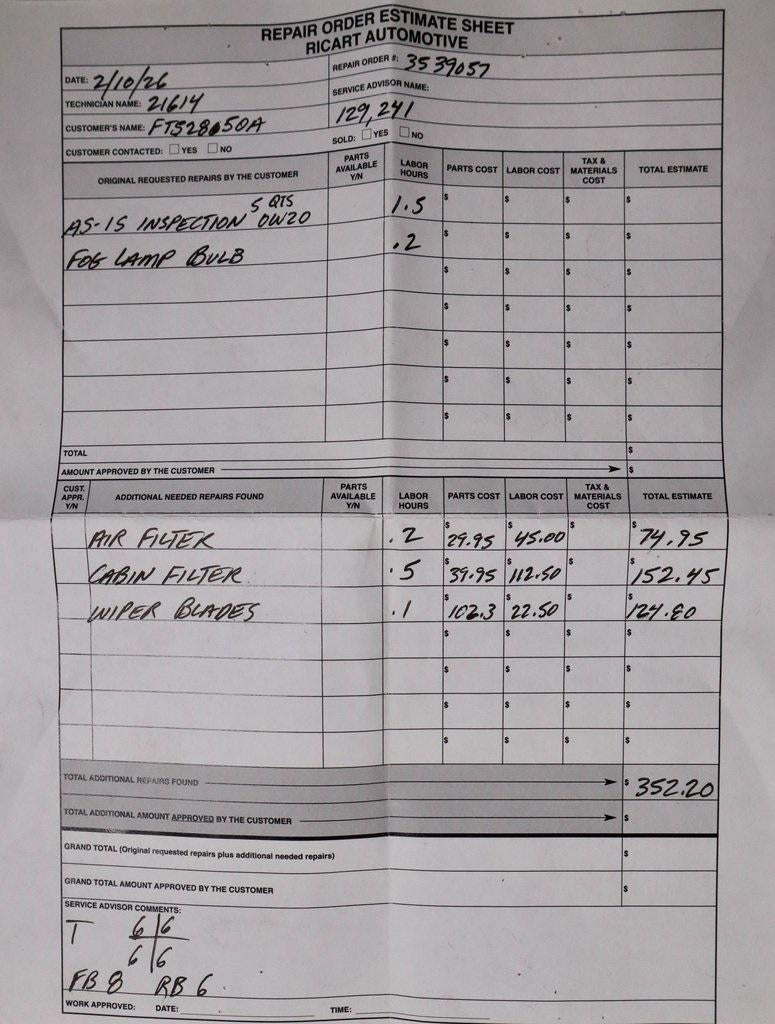 REPAIR ORDER ESTIMATE SHEET
RICART AUTOMOTIVE
DATE: 2/10/26
REPAIR ORDER #: 3539057
TECHNICIAN NAME: 21614
SERVICE ADVISOR NAME:
CUSTOMER'S NAME: FTS28050A
129,241
CUSTOMER CONTACTED: YES NO
SOLD: YES NO
ORIGINAL REQUESTED REPAIRS BY THE CUSTOMER PARTS AVAILABLE Y/N LABOR HOURS PARTS COST LABOR COST TAX & MATERIALS COST TOTAL ESTIMATE
5 QTS
AS-IS INSPECTION 0W20 1.5 $ $ $ $
FOG LAMP BULB .2 $ $ $ $
$ $ $ $
$ $ $ $
$ $ $ $
$ $ $ $
$ $ $ $
TOTAL $
AMOUNT APPROVED BY THE CUSTOMER $
CUST. APPR. Y/N ADDITIONAL NEEDED REPAIRS FOUND PARTS AVAILABLE Y/N LABOR HOURS PARTS COST LABOR COST TAX & MATERIALS COST TOTAL ESTIMATE
AIR FILTER .2 $29.95 $45.00 $ $74.95
CABIN FILTER .5 $39.95 $112.50 $ $152.45
WIPER BLADES .1 $102.3 $22.50 $ $124.80
$ $ $ $
$ $ $ $
$ $ $ $
$ $ $ $
TOTAL ADDITIONAL REPAIRS FOUND $352.20
TOTAL ADDITIONAL AMOUNT APPROVED BY THE CUSTOMER $
GRAND TOTAL (Original requested repairs plus additional needed repairs) $
GRAND TOTAL AMOUNT APPROVED BY THE CUSTOMER $
SERVICE ADVISOR COMMENTS:
T 6 6
6 6
FB 8 RB 6
WORK APPROVED: DATE: TIME: